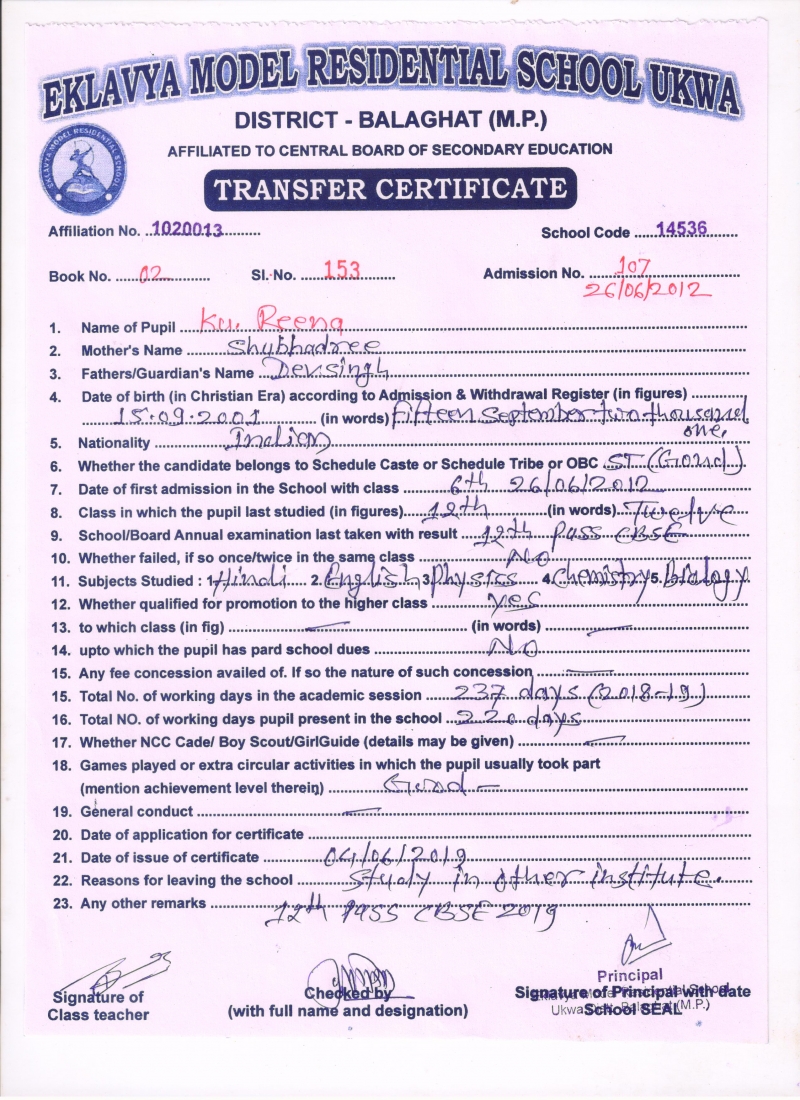 EKLAVYA MODEL RESIDENTIAL SCHOOL UKWA
DISTRICT - BALAGHAT (M.P.)
AFFILIATED TO CENTRAL BOARD OF SECONDARY EDUCATION
EKLAVYA MODEL RESIDENTIAL SCHOOL
TRANSFER CERTIFICATE
Affiliation No. 1020013 School Code 14536
Book No. 02 Sl. No. 153 Admission No. 107
26/06/2012
1. Name of Pupil Ku. Reena
2. Mother's Name Shubhadree
3. Fathers/Guardian's Name Devsingh
4. Date of birth (in Christian Era) according to Admission & Withdrawal Register (in figures)
15.09.2001 (in words) fifteen September two thousand
one.
5. Nationality Indian
6. Whether the candidate belongs to Schedule Caste or Schedule Tribe or OBC ST (Gond)
7. Date of first admission in the School with class 6th 26/06/2012
8. Class in which the pupil last studied (in figures) 12th (in words) Twelve
9. School/Board Annual examination last taken with result 12th Pass CBSE
10. Whether failed, if so once/twice in the same class NO
11. Subjects Studied : 1. Hindi 2. English 3. Physics 4. Chemistry 5. Biology
12. Whether qualified for promotion to the higher class yes
13. to which class (in fig) (in words)
14. upto which the pupil has pard school dues NO
15. Any fee concession availed of. If so the nature of such concession
15. Total No. of working days in the academic session 237 days (2018-19)
16. Total NO. of working days pupil present in the school 220 days
17. Whether NCC Cade/ Boy Scout/GirlGuide (details may be given)
18. Games played or extra circular activities in which the pupil usually took part
(mention achievement level therein)
19. General conduct
20. Date of application for certificate
21. Date of issue of certificate 04/06/2019
22. Reasons for leaving the school Study in other institute.
23. Any other remarks 12th PASS CBSE 2019
Principal
Signature of Class teacher
Checked by
(with full name and designation)
Signature of Principal with date
School SEAL